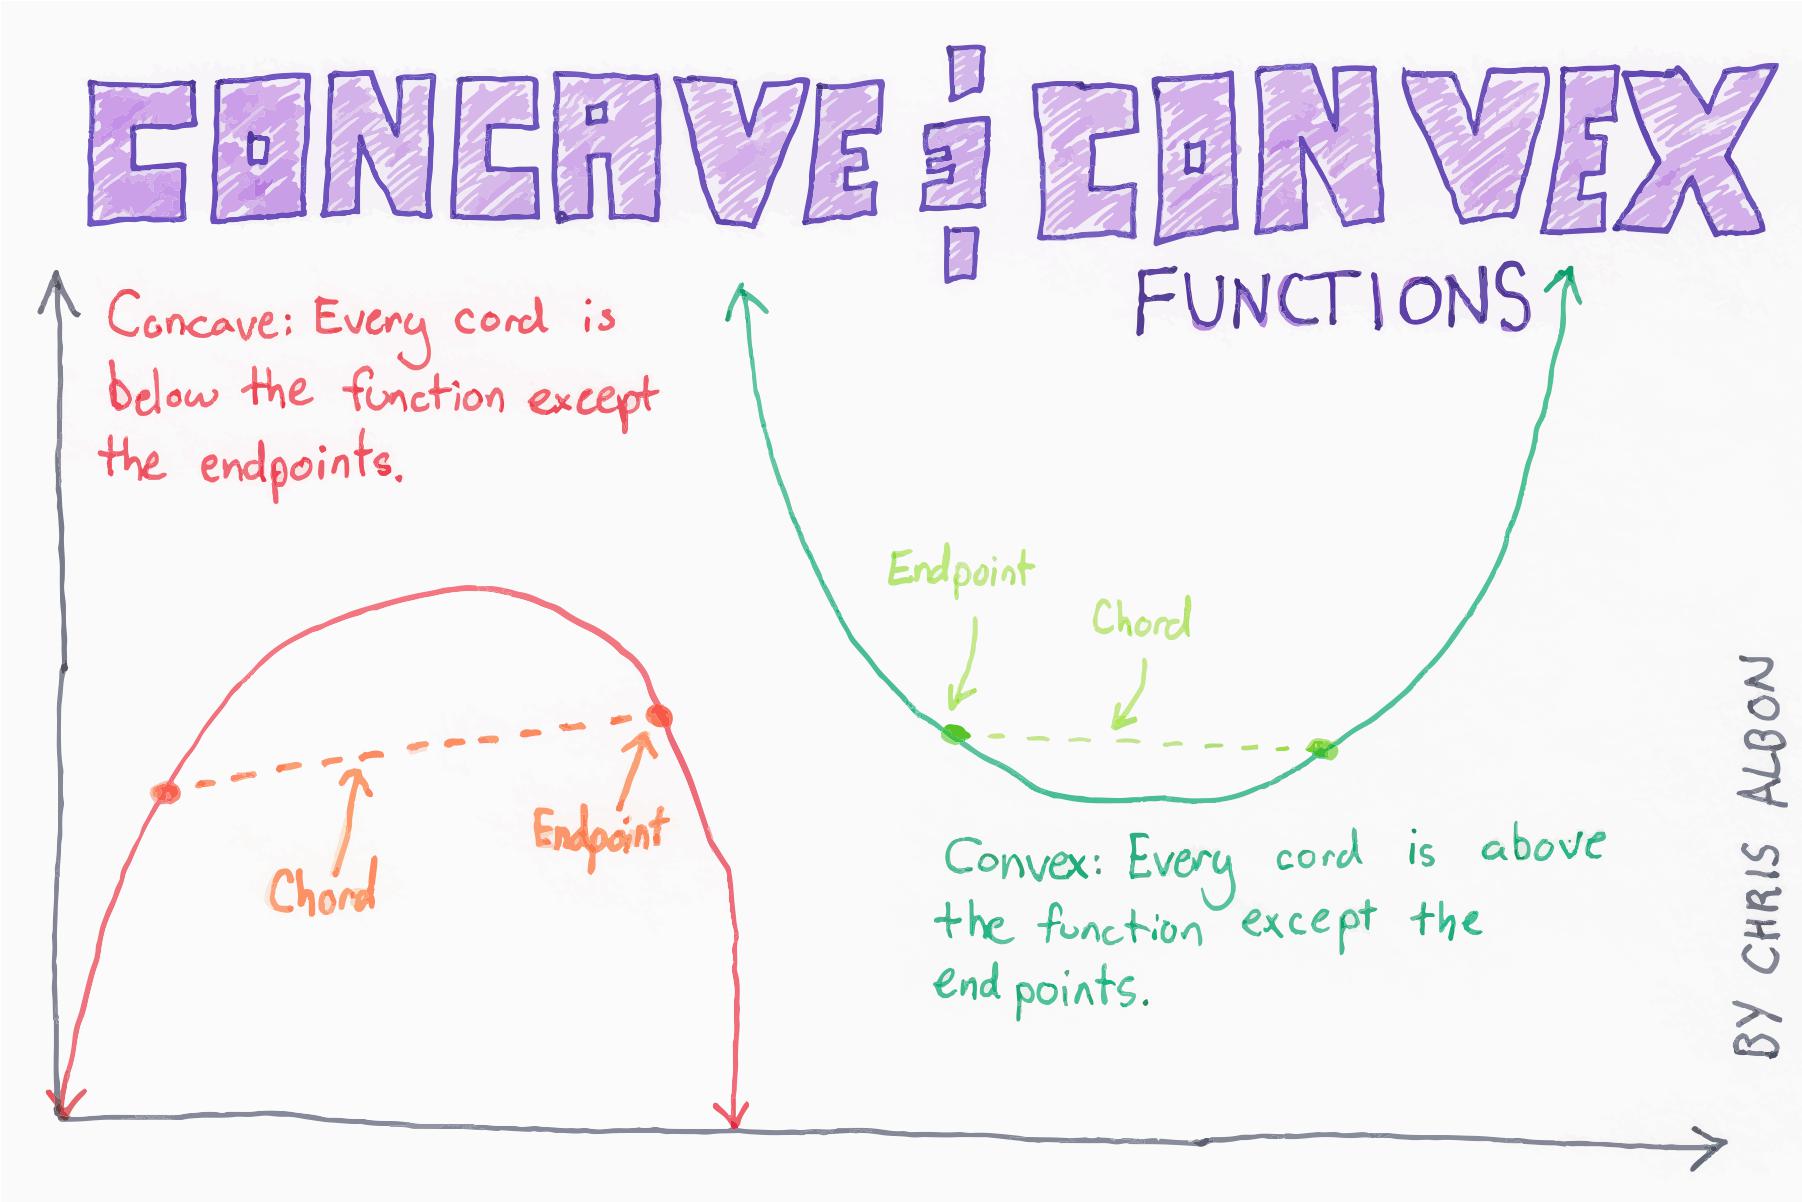 CONCAVE & CONVEX
FUNCTIONS
Concave: Every cord is
below the function except
the endpoints.
Endpoint
Chord
Endpoint
Chord
Convex: Every cord is above
the function except the
endpoints.
BY CHRIS ALBON